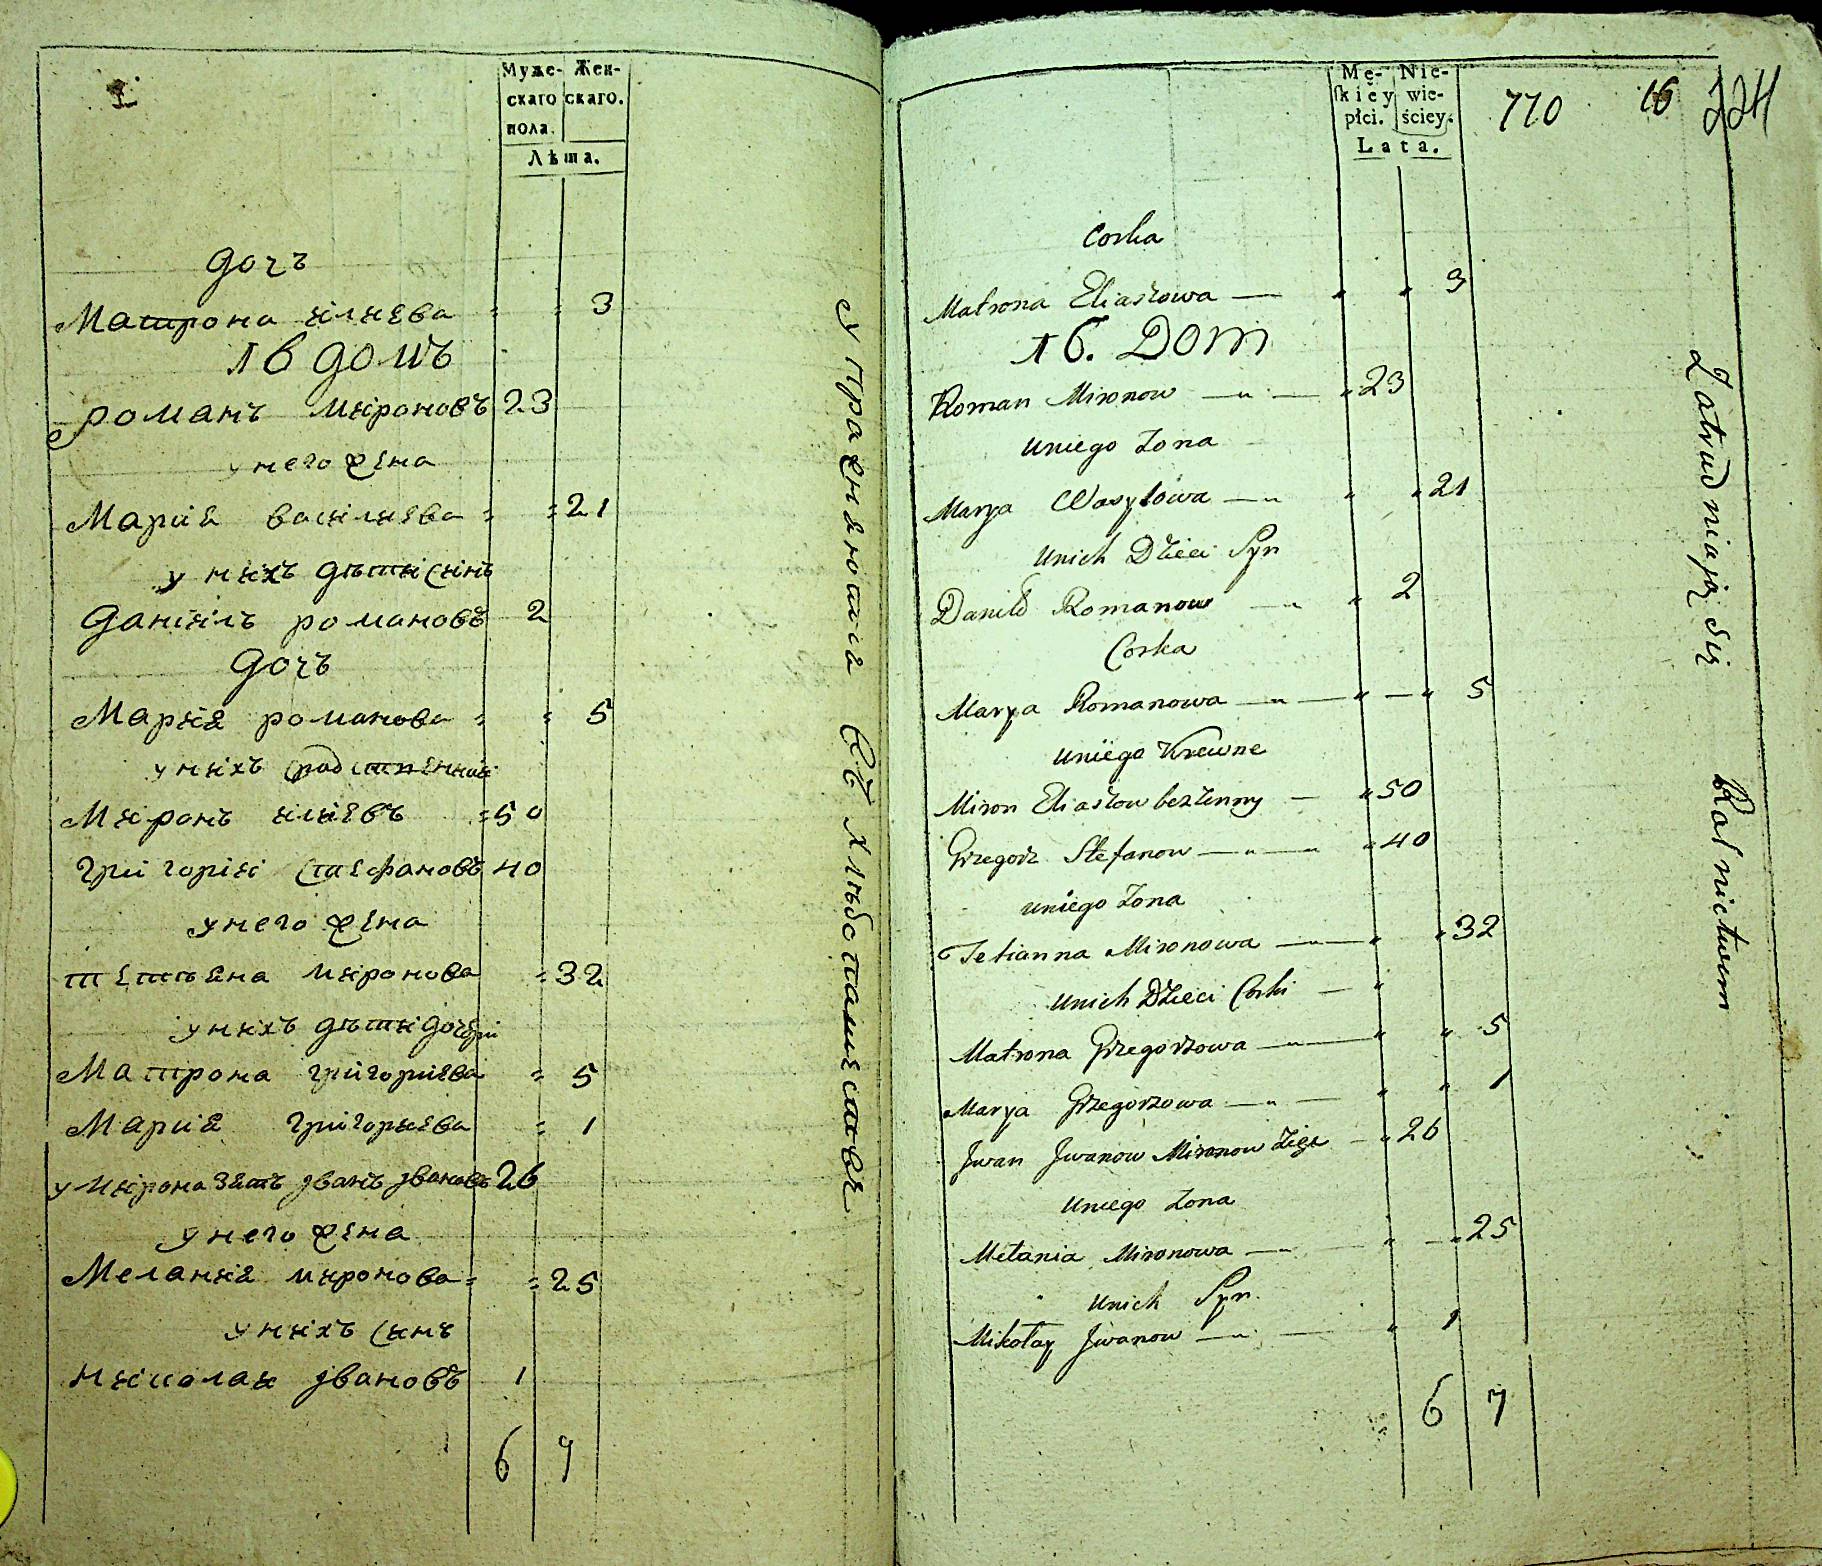 Муже- Жен-
скаго скаго.
пола.
Лѣта.
дочъ
Матрона илиева = = 3
16 домъ
романъ мироновъ 23
у него жена
Мария василиева = = 21
у нихъ дѣти сынъ
даніилъ романовъ 2
дочъ
Мария романова = = 5
у нихъ родственники
Миронъ илиевъ = 50
григоріи стефановъ 40
у него жена
тетьяна миронова = 32
у нихъ дѣти дочери
Матрона григориева = 5
Мария григориева = 1
у мирона зять іванъ івановъ 26
у него жена
Мелания миронова = = 25
у нихъ сынъ
николаи івановъ 1
6 9
упражняются въ хлѣбопашествѣ
Mę- Nie-
ſkiéy wie-
płci. ściey.
Lata.
770 16 224
Corka
Matrona Eliaszowa — „ „ 3
16. Dom
Roman Mironow — „ — „ 23
u niego Żona
Marya Wasylowa — „ „ „ 21
u nich Dzieci Syn
Daniło Romanow — „ „ 2
Corka
Marya Romanowa — „ — „ — „ 5
u niego Krewne
Miron Eliaszow bezżenny — „ 50
Grzegorz Stefanow — „ — „ 40
u niego Żona
Tetianna Mironowa — „ „ 32
u nich Dzieci Corki — „
Matrona Grzegorzowa — „ — „ „ 5
Marya Grzegorzowa — „ — „ „ 1
Jwan Jwanow Mironow Zięć — „ 26
u niego Żona
Mełania Mironowa — „ „ — „ 25
u nich Syn
Mikołay Jwanow — „ — „ 1
6 7
Zatrudniają się Rolnictwem